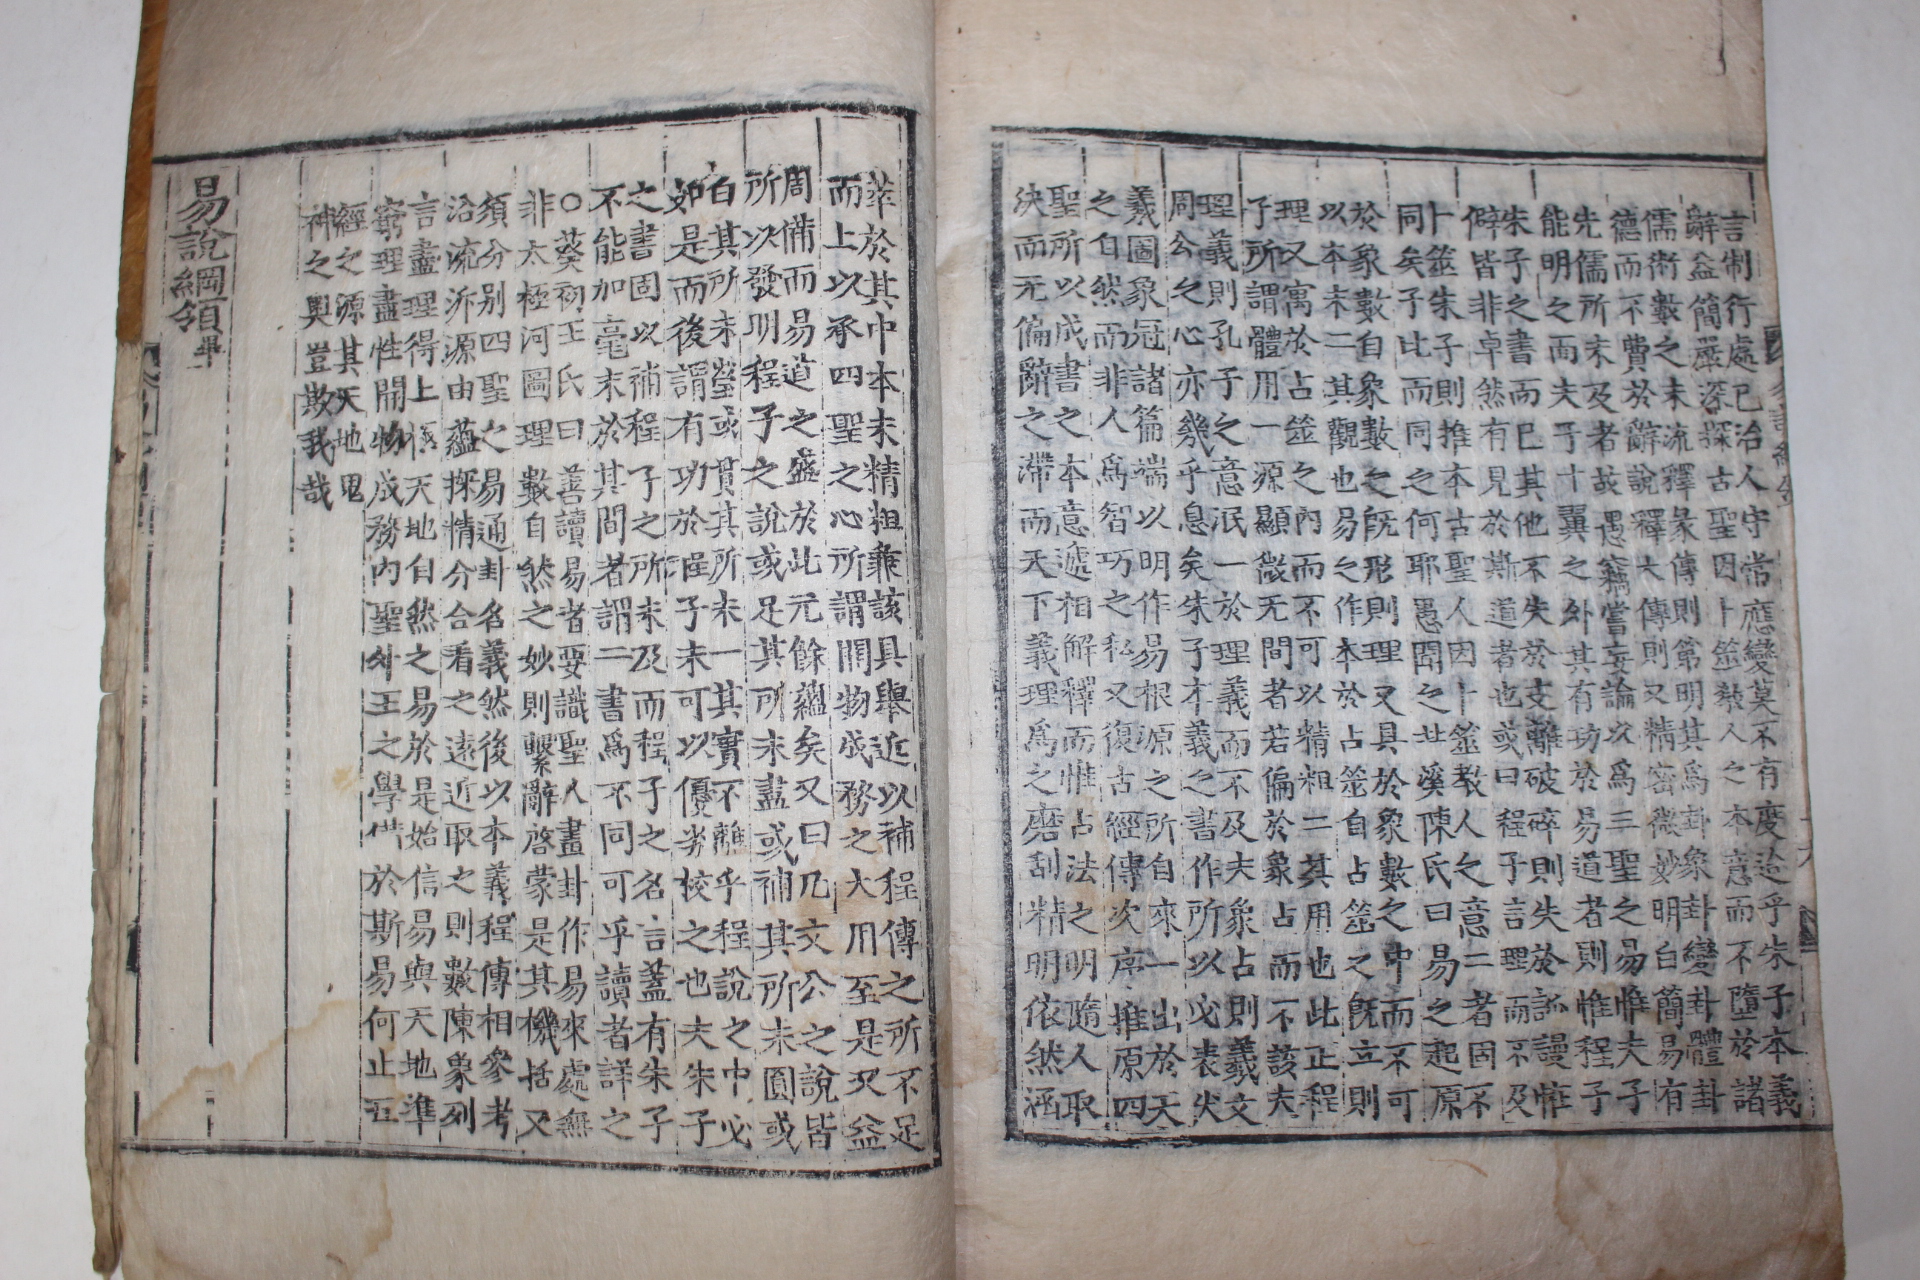 言制行處已治人守常應變莫不有度迨乎朱子本義
辭益簡嚴深探古聖因卜筮敎人之本意而不墮於諸
儒術數之末流釋彖傳則第明其爲卦象卦變卦體卦
德而不費於辭說釋大傳則又精密微妙明白簡易有
先儒所未及者故愚竊嘗妄論以爲三聖之易惟夫子
能明之而夫子十翼之外其有功於易道者則惟程子
朱子之書而已其他不失於支離破碎則失於訛謾惟
僻皆非卓然有見於斯道者也或曰程子言理而不及
卜筮朱子則推本古聖人因卜筮敎人之意二者固不
同矣子比而同之何耶愚聞之廿溪陳氏曰易之起原
於象數自象數之旣形則理又具於象數之中而不可
以本末二其觀也易之作本於占筮自占筮之旣立則
理又寓於占筮之內而不可以精粗二其用也此正程
子所謂體用一源顯微无間者若偏於象占而不該夫
理義則孔子之意泯一於理義而不及夫象占則羲文
周公之心亦幾乎息矣朱子本義之書作所以必表伏
羲圖象冠諸篇端以明作易根原之所自來一出於天
之自然而非人爲智巧之私又復古經傳次序推原四
聖所以成書之本意遞相解釋而惟占法之明隨人取
決而无偏辭之滯而天下義理爲之磨刮精明依然涵
萃於其中本末精粗兼該具擧近以補程傳之所不足
而上以承四聖之心所謂開物成務之大用至是又益
周備而易道之盛於此元餘蘊矣又曰凡文公之說皆
所以發明程子之說或足其所未盡或補其所未圓或
白其所未瑩或貫其所未一其實不離乎程說之中必
如是而後謂有功於程子未可以優劣校之也夫朱子
之書固以補程子之所未及而程子之名言蓋有朱子
不能加毫末於其間者謂二書爲不同可乎讀者詳之
○葵初王氏曰善讀易者要識聖人畫卦作易來處無
非太極河圖理數自然之妙則繫辭啓蒙是其機括又
須分別四聖之易通卦名義然後以本義程傳相參考
沿流泝源由蘊探情分合看之遠近取之則數陳象列
言盡理得上極天地自然之易於是始信易與天地準
窮理盡性開物成務內聖外王之學備於斯易何止五
經之源其天地鬼
神之奧豈欺我哉
易說綱領畢